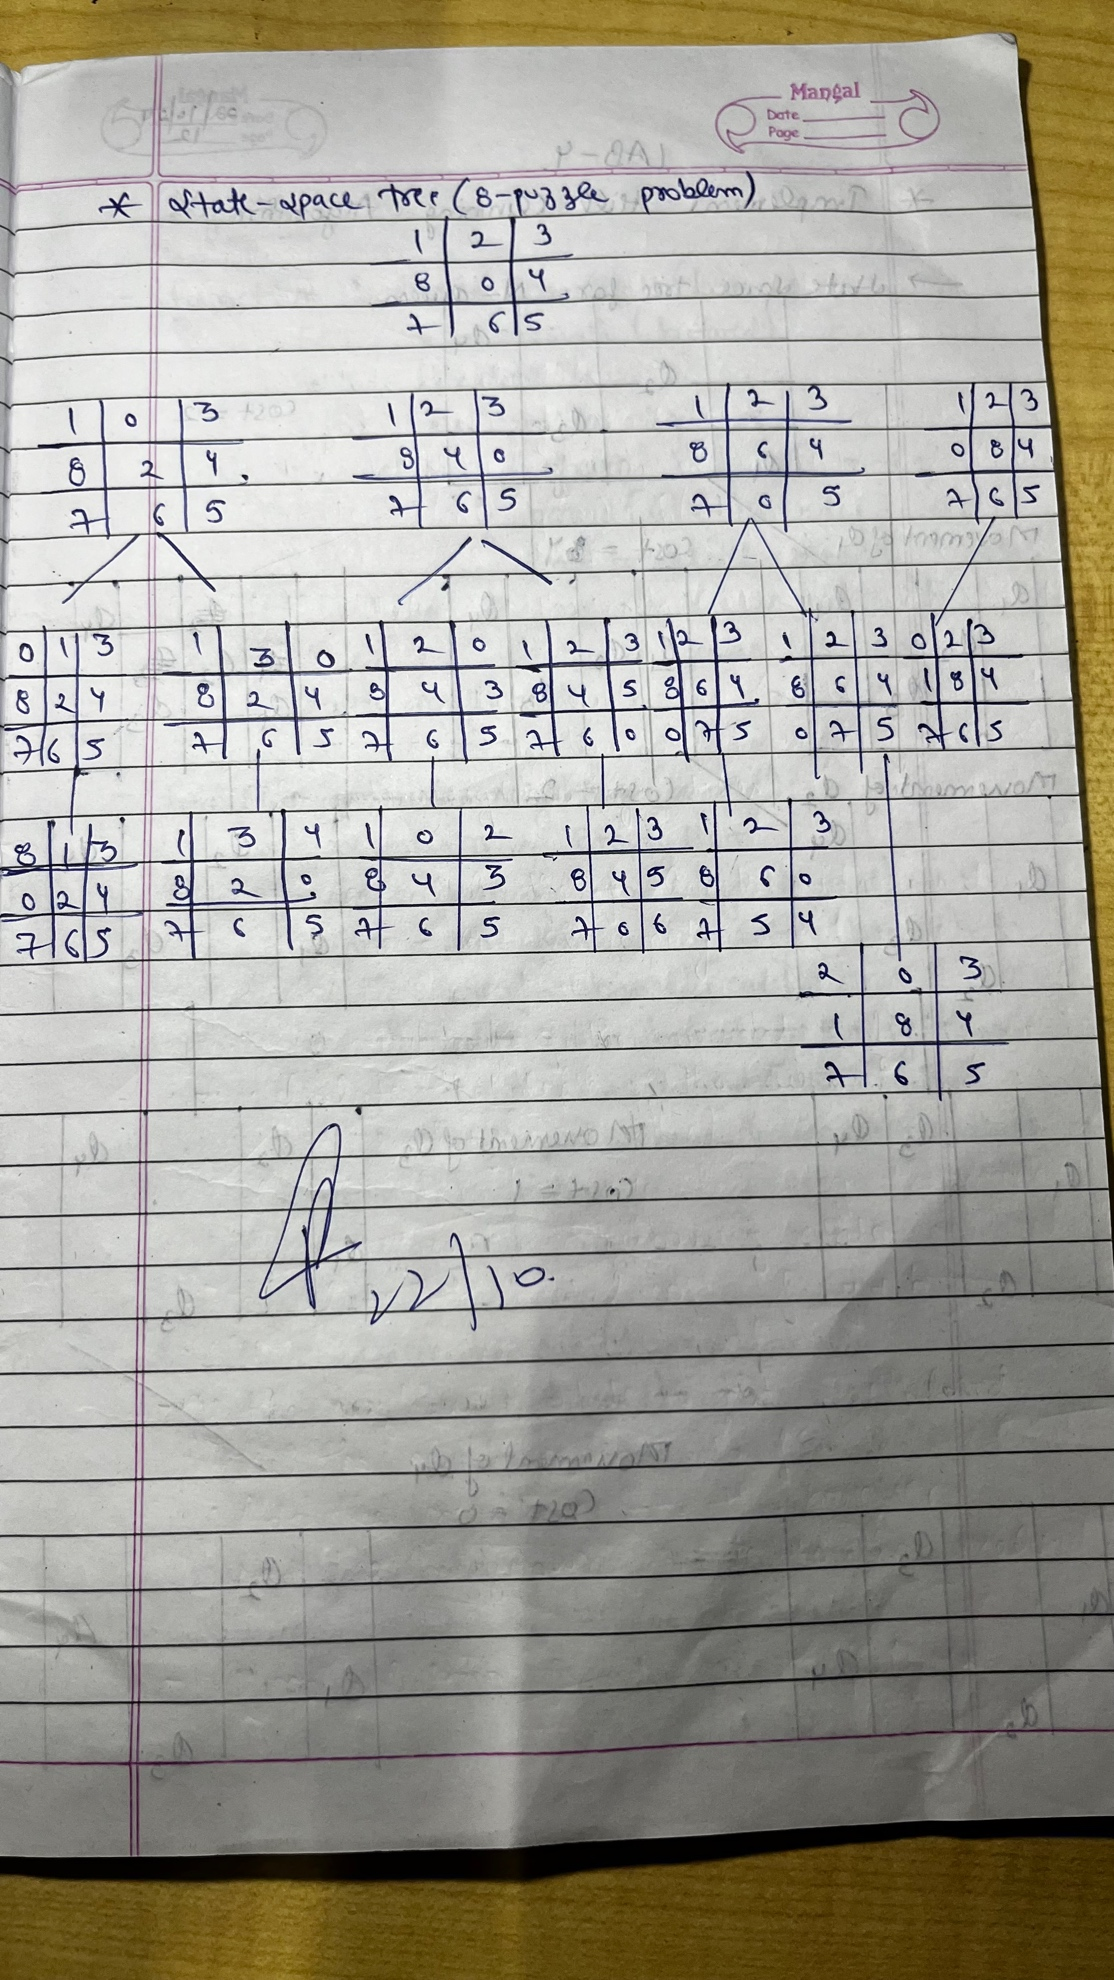 Mangal
Date
Page
* State-space tree (8-puzzle problem)
1 2 3
8 0 4
7 6 5
1 0 3
8 2 4
7 6 5
1 2 3
8 4 0
7 6 5
1 2 3
8 6 4
7 0 5
1 2 3
0 8 4
7 6 5
0 1 3
8 2 4
7 6 5
1 3 0
8 2 4
7 6 5
1 2 0
8 4 3
7 6 5
1 2 3
8 4 5
7 6 0
1 2 3
8 6 4
0 7 5
1 2 3
8 6 4
0 7 5
0 2 3
1 8 4
7 6 5
8 1 3
0 2 4
7 6 5
1 3 4
8 2 0
7 6 5
1 0 2
8 4 3
7 6 5
1 2 3
8 4 5
7 0 6
1 2 3
8 6 0
7 5 4
2 0 3
1 8 4
7 6 5
22/10.